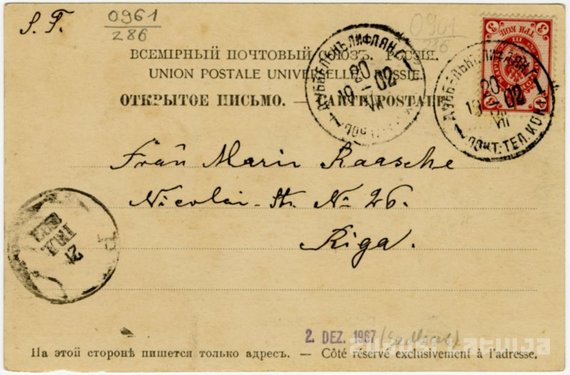 S. F.
0961
286
ВСЕМІРНЫЙ ПОЧТОВЫЙ СОЮЗЪ. РОССІЯ.
UNION POSTALE UNIVERSELLE. RUSSIE.
ОТКРЫТОЕ ПИСЬМО. — CARTE POSTALE.
ДУББЕЛЬНЪ ЛИФЛЯН.
20
19 02
VII
ДУББЕЛЬНЪ ЛИФЛЯН.
20
19 02
VII
ПОЧТ. ТЕЛ. КОН.
3 3
Frau Marie Raasche
Nicolai-Str. No 26.
Riga.
2. DEZ. 1967
На этой сторонѣ пишется только адресъ. — Côté réservé exclusivement à l'adresse.